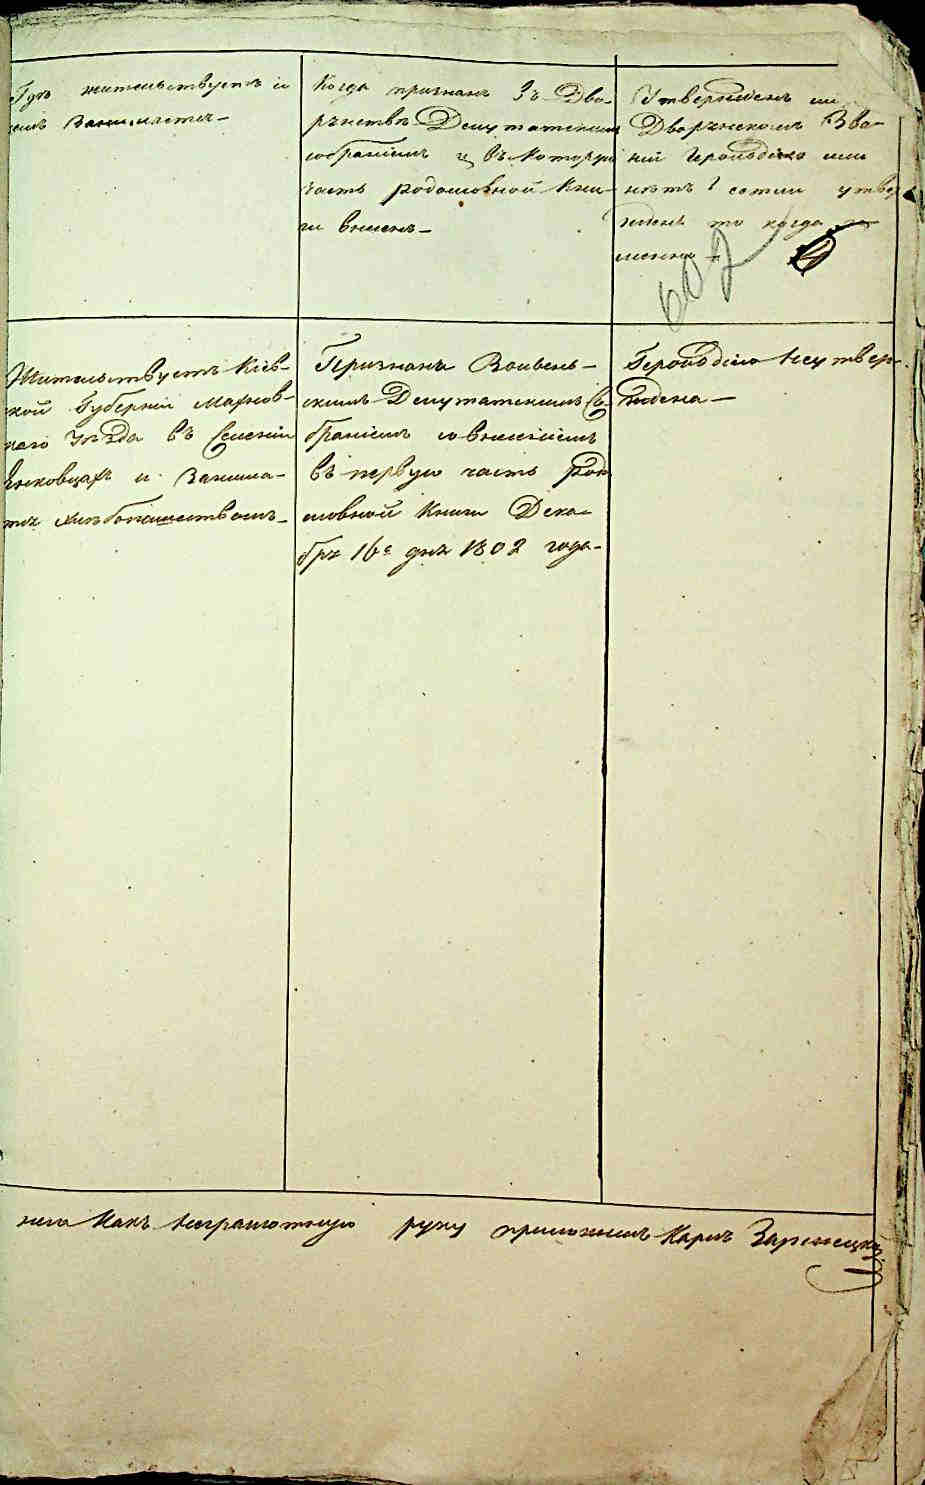 Гдѣ жительствуетъ и
чемъ Занимается—
Когда признанъ Въ Дво-
рянствѣ Депутатскимъ
собраніемъ и въ которую
часть родословной Кни-
ги внесенъ—
Утвержденъ ли
Дворянскомъ Зва-
ніи Герольдіею или
нѣтъ и естли утвер
жденъ то когда
именно
602
Жительствуетъ Кіев-
ской Губерніи Махнов-
скаго Уѣзда въ Селеніи
и Занима-
ется хлѣбопашествомъ—
Признанъ Волынь-
скимъ Депутатскимъ Со-
браніемъ со внесеніемъ
въ первую часть Родо
словной Книги Дека-
бря 16г дня 1802 года—
Герольдіею Неутвер-
жденъ—
него Какъ неграмотную руку приложилъ Карлъ Заржецкій